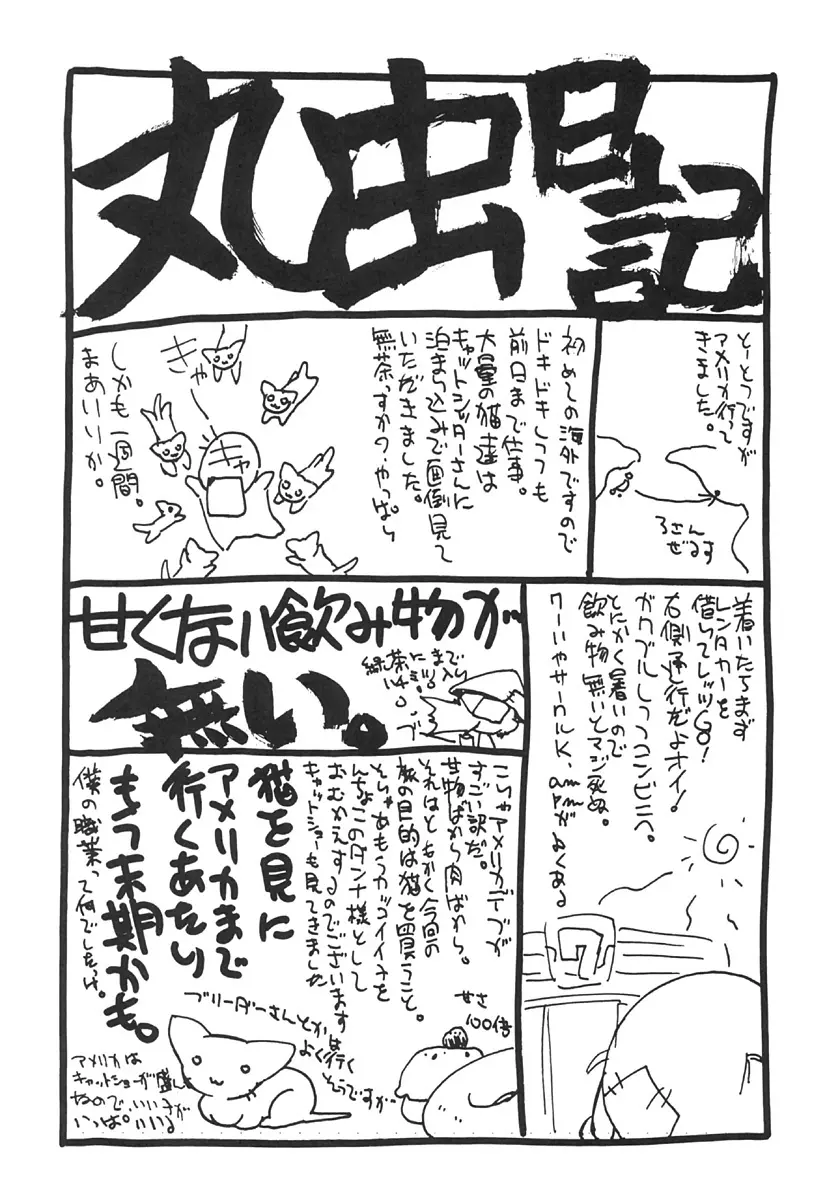 丸虫日記
とーとつですが
アメリカ行って
きました。
ろさん
ぜるす
初めての海外ですので
ドキドキしつつも
前日まで仕事。
大量の猫達は
キャットシッターさんに
泊まり込みで面倒見て
いただきました。
無茶っすか?やっぱり
きゃー
キャ
しかも一週間。
まあいいか。
着いたらまず
レンタカーを
借りてレッツGO!
右側通行だよオイ!
ガクブルしつつコンビニへ。
とにかく暑いので
飲み物無いとマジ死ぬ。
ワーいやサークルK、am
pmがよくある
7
甘くない飲み物が
無い。
緑茶にまで
ブ
こりゃアメリカデブが
すごい訳だ。
甘物ばから肉ばから。
それはともかく今回の
旅の目的は猫を買うこと。
そりゃあもうカッコイイネを
んちょこのダンナ様として
おむかえするのでございます
キャットショーも見てきました
甘さ
100倍
猫を見に
アメリカまで
行くあたり
もう末期かも。
僕の職業って何でしたっけ。
ブリーダーさんとかは
よく行く
そうですが
アメリカは
キャットショーが盛ん
なので、いいさが
いっぱいいる